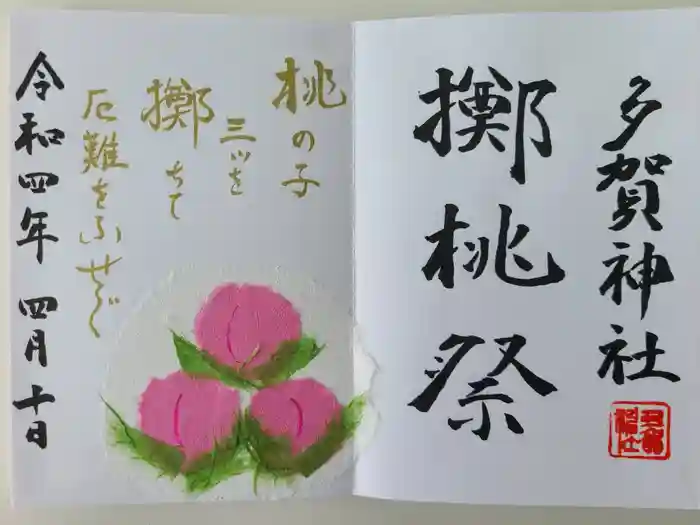 多賀神社
擲桃祭
桃の子
三ツを
擲ちて
厄難をふせぐ
令和四年 四月十日